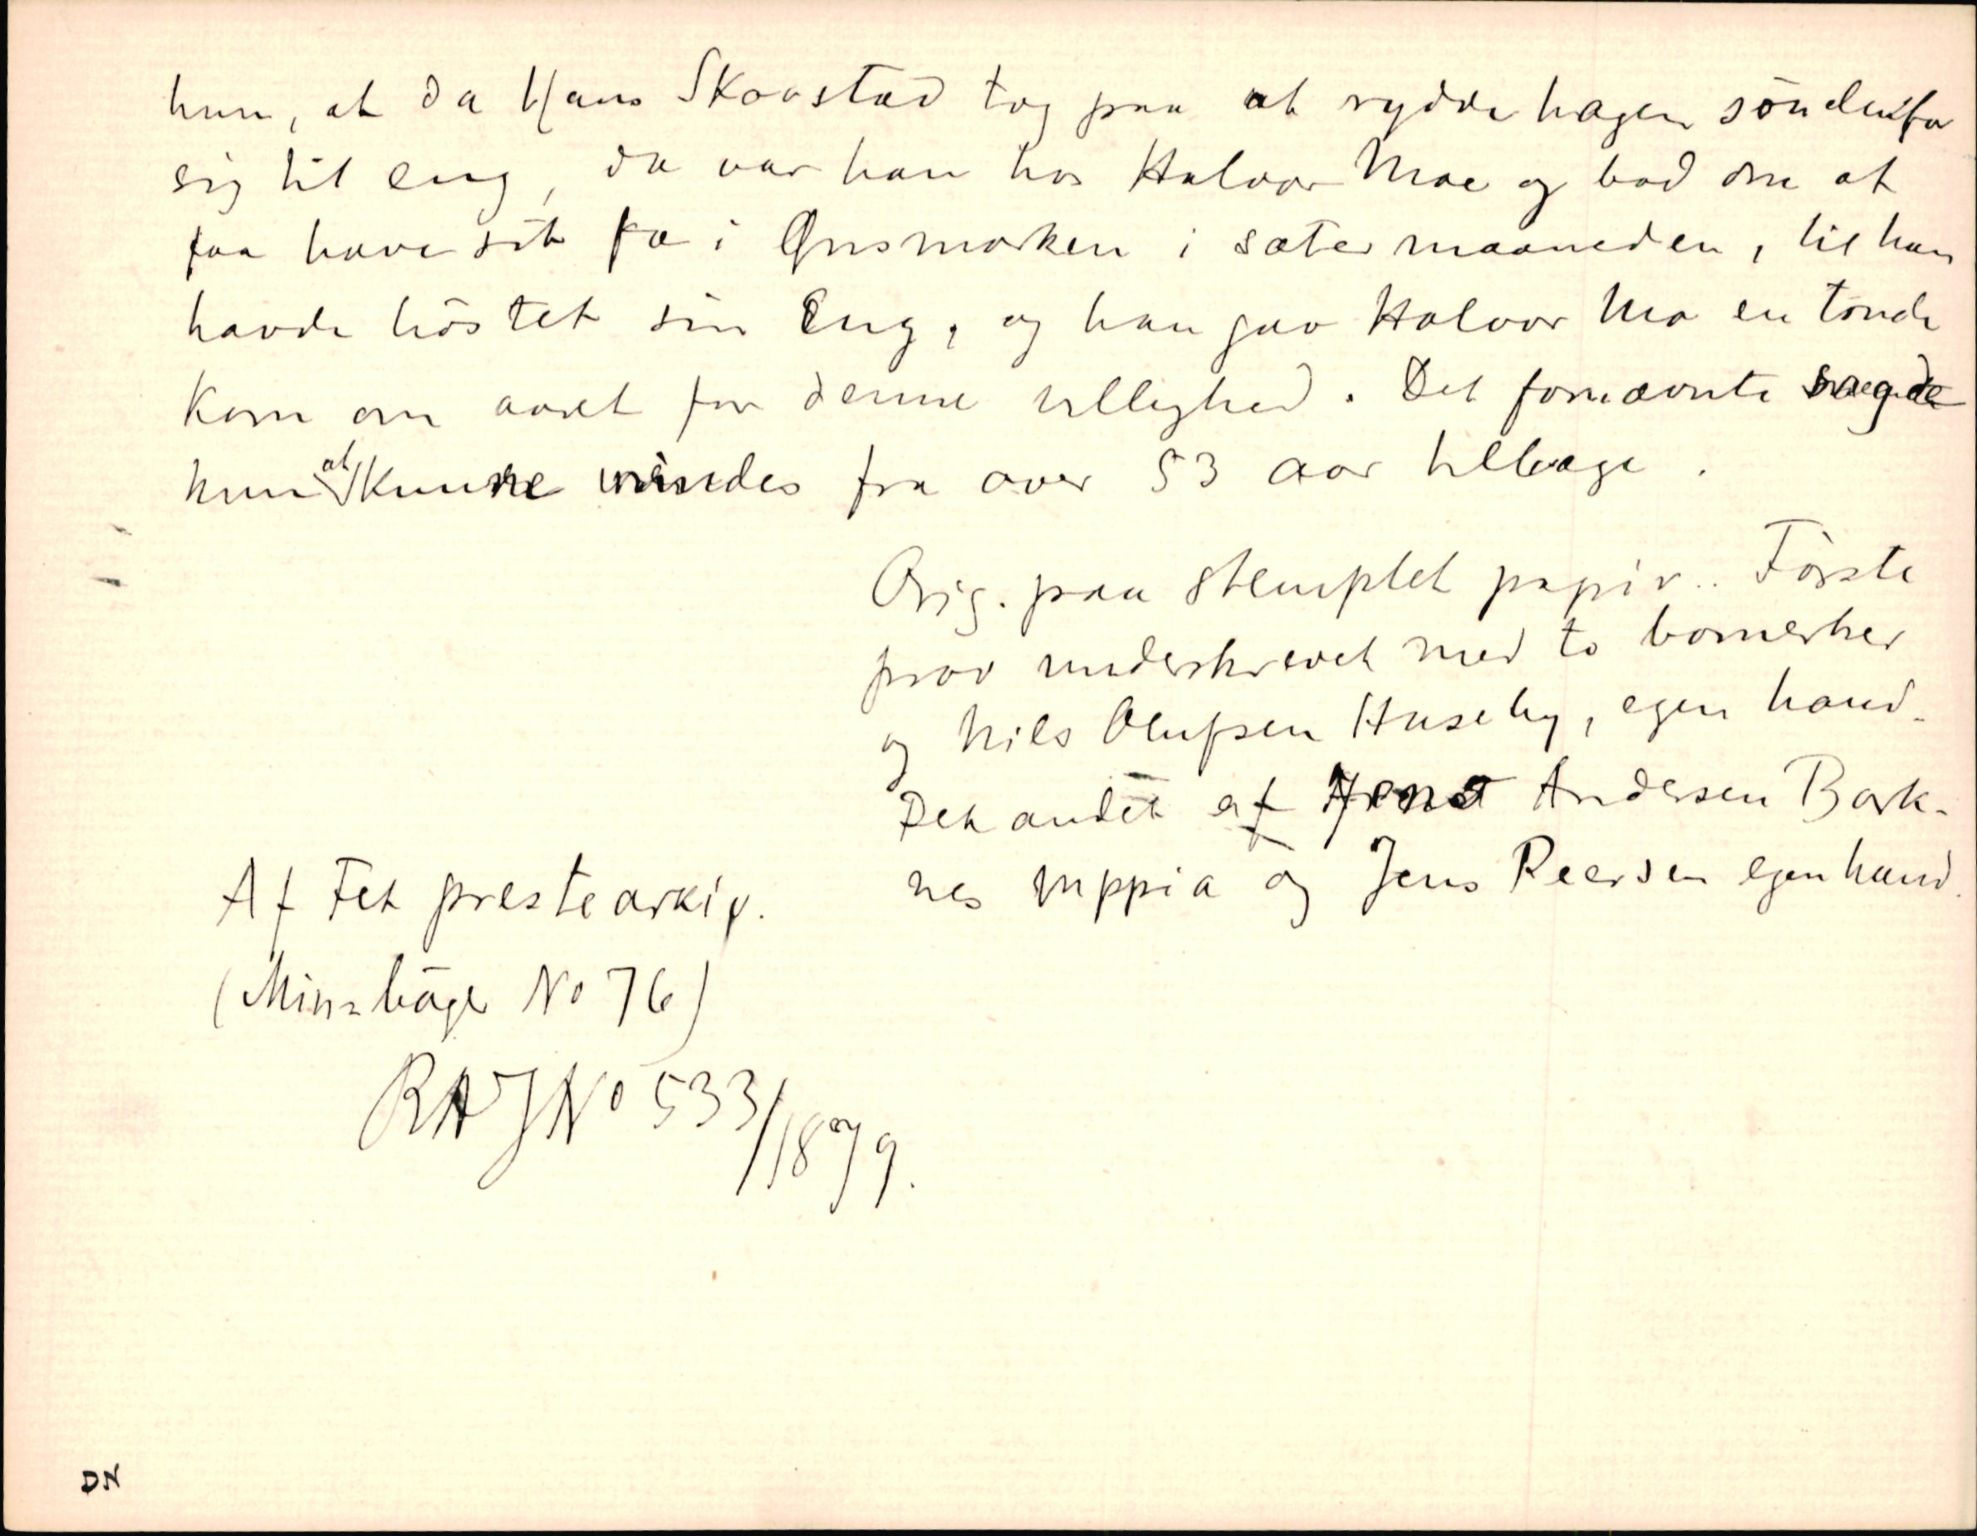 hun, at da Hans Skovstad tog paa at rydde hagen söndenfor
sig til eng, da var han hos Halvor Moe og bad om at
faa have sit fæ i Gnsmarken i sætermaaneden, til han
havde höstet sin Eng, og han gav Halvor Mo en tönde
Korn om aaret for denne villighed. Det fornævnte sagde
hun at kunne mindes fra over 53 aar tilbage.
Orig. paa stemplet papir.. Förste
prov underskrevet med to bomerker
og Nils Olufsen Huseby, egen haand.
Det andet af Andersen Bark-
nes mppia og Jens Peersen egen haand.
Af Fet prestearkiv.
(Min=böger No 76)
RA JNo 533/1879.
DN